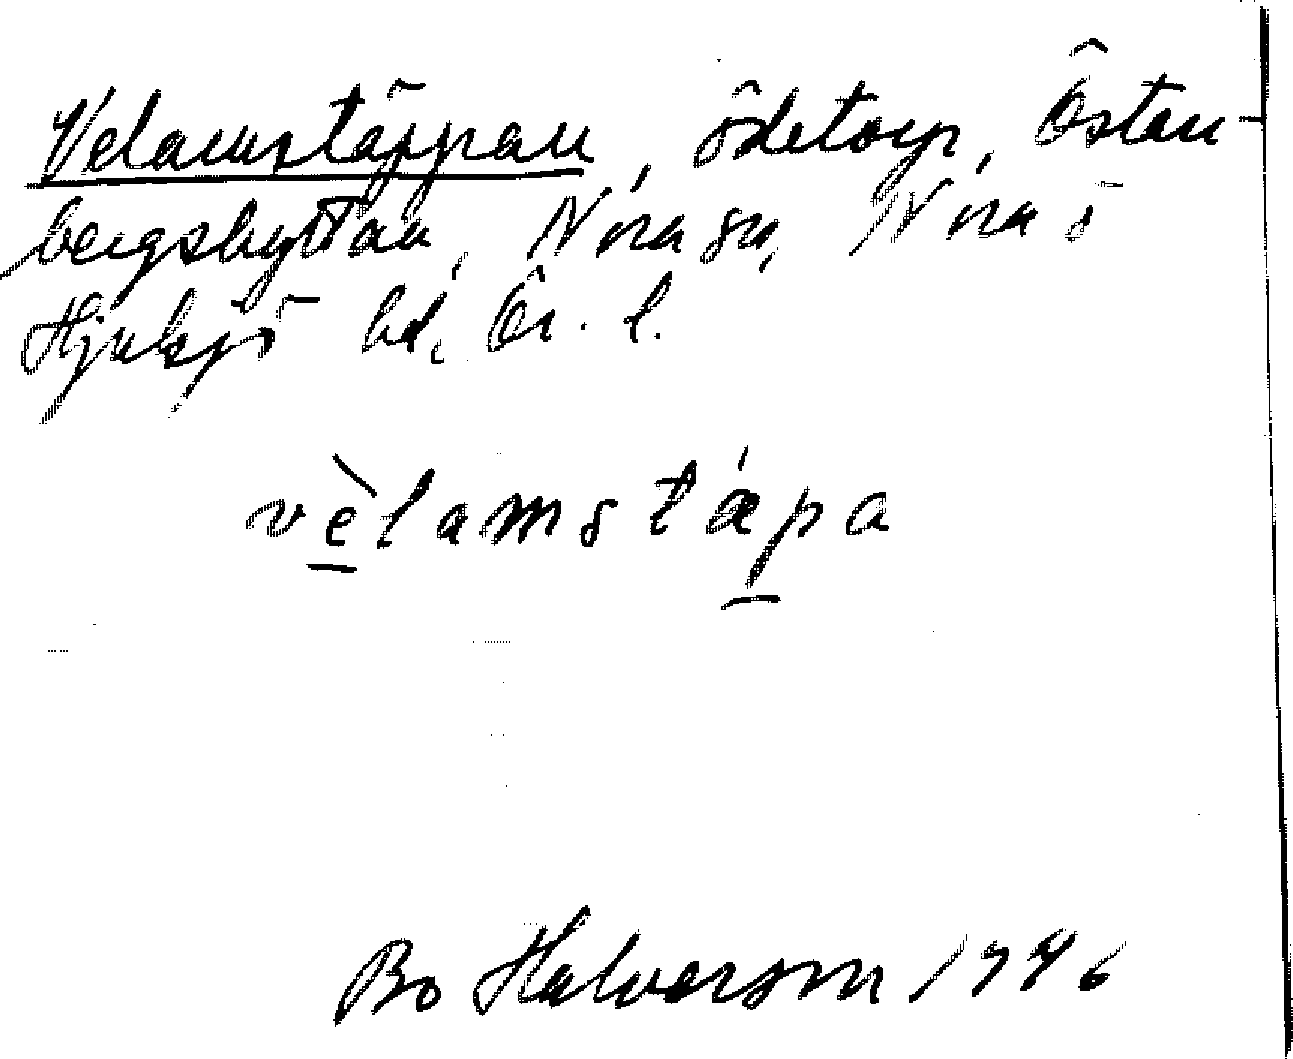 Velamstäppan, ödetorp, Östan-
bergshyttan, Nora sn, Nora o
Hjulsjö bd, Ör. l.
vèlamstápa
Bo Halvarson 1946